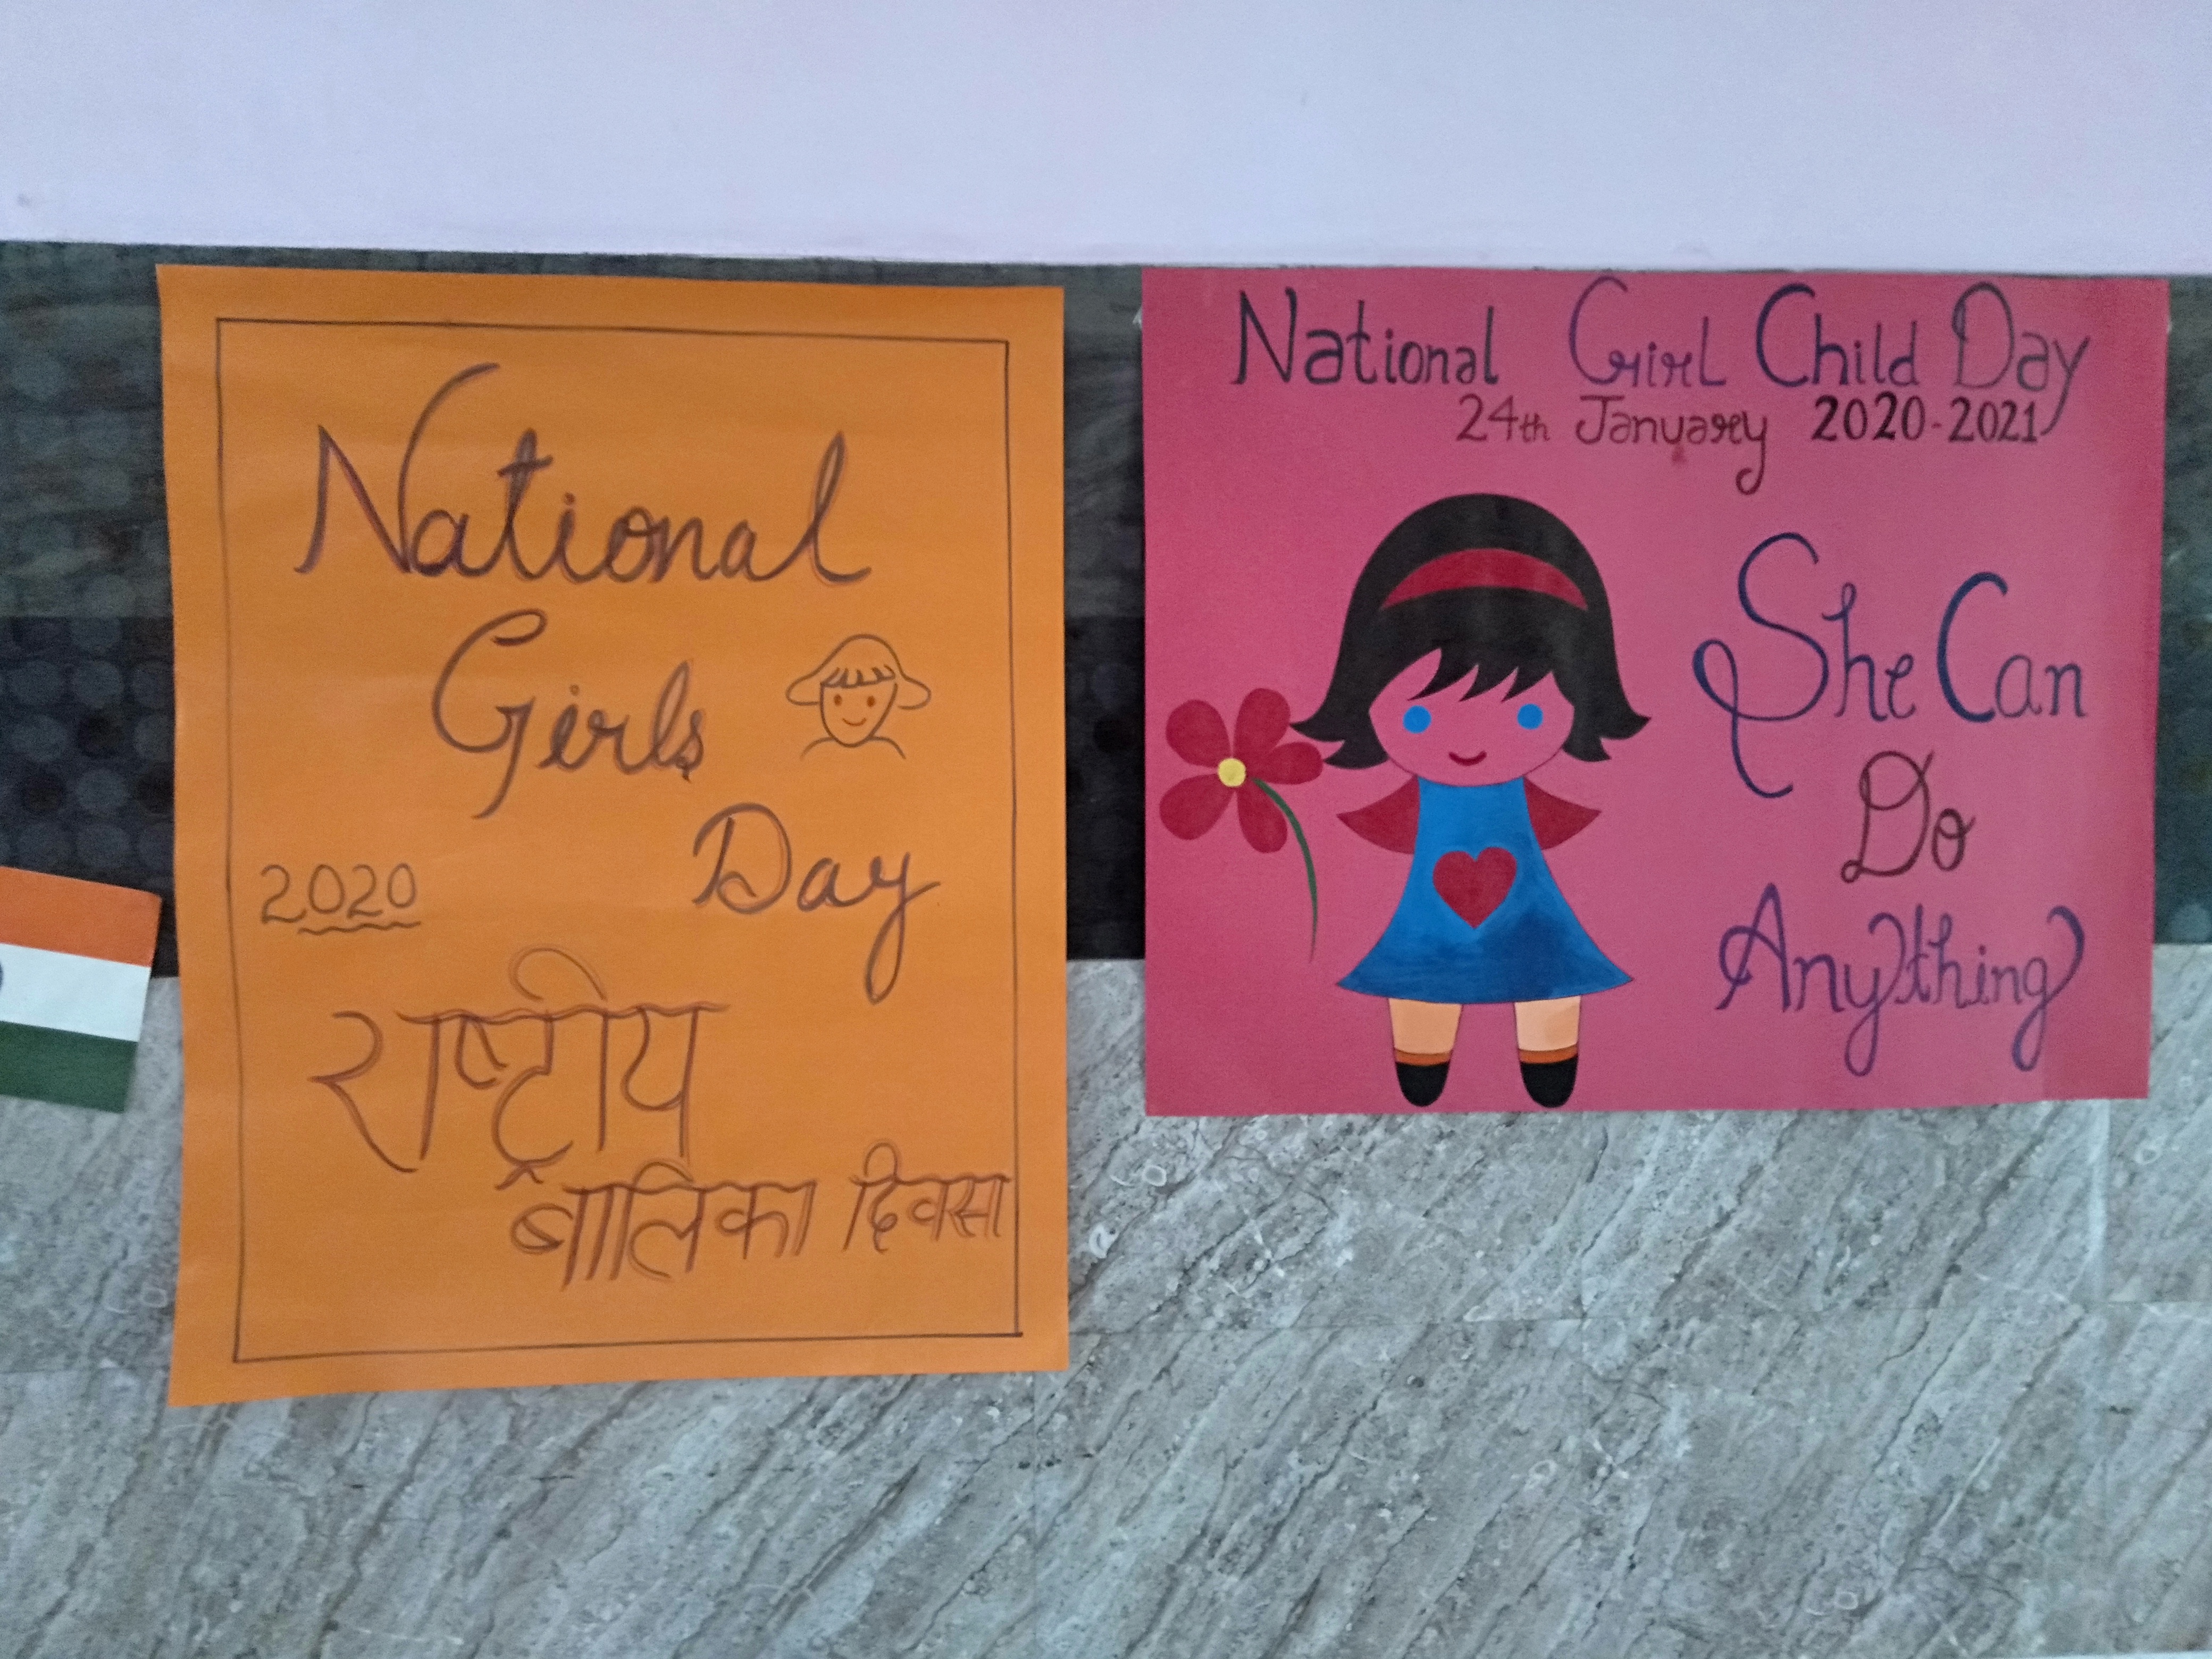 National
Girls
Day
2020
राष्ट्रीय
बालिका दिवस
National Girl Child Day
24th January 2020-2021
She Can
Do
Anything